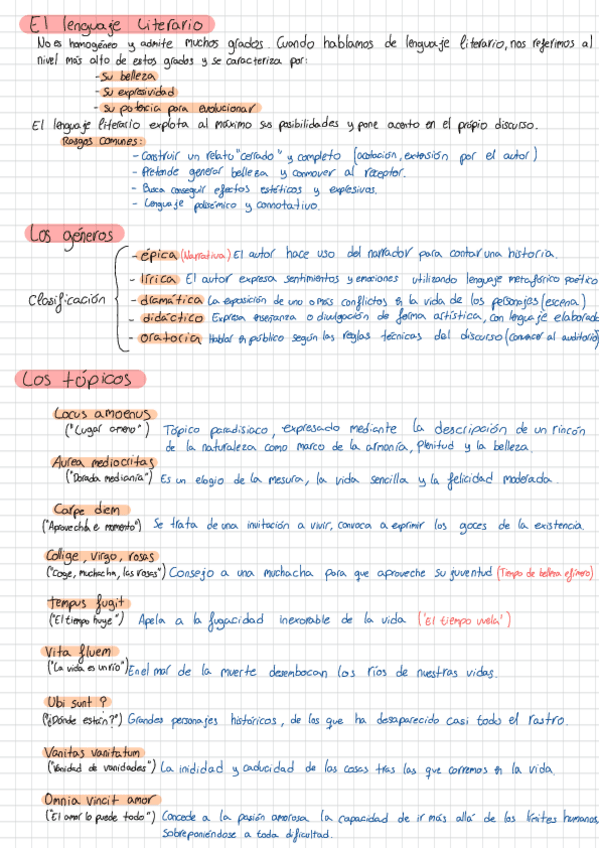 El lenguaje Literario
No es homogéneo y admite muchos grados. Cuando hablamos de lenguaje literario, nos referimos al
nivel más alto de estos grados y se caracteriza por:
- Su belleza
- Su expresividad
- Su potencia para evolucionar
El lenguaje literario explota al máximo sus posibilidades y pone acento en el propio discurso.
Rasgos comunes:
- Construir un relato "cerrado" y completo (acotación, extensión por el autor)
- Pretende generar belleza y conmover al receptor.
- Busca conseguir efectos estéticos y expresivos.
- Lenguaje polisémico y connotativo.
Los géneros
Clasificación
- épica (Narrativa) El autor hace uso del narrador para contar una historia.
- lírica El autor expresa sentimientos y emociones utilizando lenguaje metafórico poético
- dramática La exposición de uno o más conflictos en la vida de los personajes (escena)
- didáctico Expresa enseñanza o divulgación de forma artística, con lenguaje elaborado
- oratoria Hablar en público según las reglas técnicas del discurso (convencer al auditorio)
Los tópicos
Locus amoenus
("Lugar ameno") Tópico paradisiaco, expresado mediante la descripción de un rincón
de la naturaleza como marco de la armonía, plenitud y la belleza.
Aurea mediocritas
("Dorada medianía") Es un elogio de la mesura, la vida sencilla y la felicidad moderada.
Carpe diem
("Aprovecha el momento") Se trata de una invitación a vivir, convoca a exprimir los goces de la existencia.
Collige, virgo, rosas
("Coge, muchacha, las rosas") Consejo a una muchacha para que aproveche su juventud (Tiempo de belleza efímero)
Tempus fugit
("El tiempo huye") Apela a la fugacidad inexorable de la vida ("El tiempo vuela")
Vita fluem
("La vida es un río") En el mar de la muerte desembocan los ríos de nuestras vidas.
Ubi sunt?
("¿Dónde están?") Grandes personajes históricos, de los que ha desaparecido casi todo el rastro.
Vanitas vanitatum
("Vanidad de vanidades") La inutilidad y caducidad de las cosas tras las que corremos en la vida
Omnia vincit amor
("El amor lo puede todo") Concede a la pasión amorosa la capacidad de ir más allá de los límites humanos,
sobreponiéndose a toda dificultad.